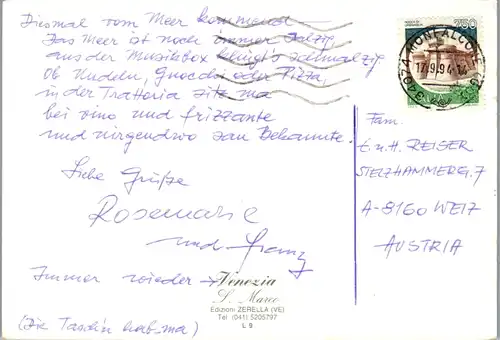 Diesmal vom Meer kommend
Das Meer ist noch immer salzig
aus der Musikbox klingt's schmalzig
Ob Nudeln, Gnocchi oder Pizza,
in der Trattoria sitz ma
bei vino und frizzante
und nirgendwo san Bekannte.
Liebe Grüße
Rosemarie
und Franz
Immer wieder → Venezia
S. Marco
Edizioni ZERELLA (VE)
Tel (041) 5205797
L 9
(Die Taschn hab ma)
750
34074 MONFALCONE
17.9.94
Fam.
E.u.H. REISER
STELZHAMMERG. 7
A-8160 WEIZ
AUSTRIA